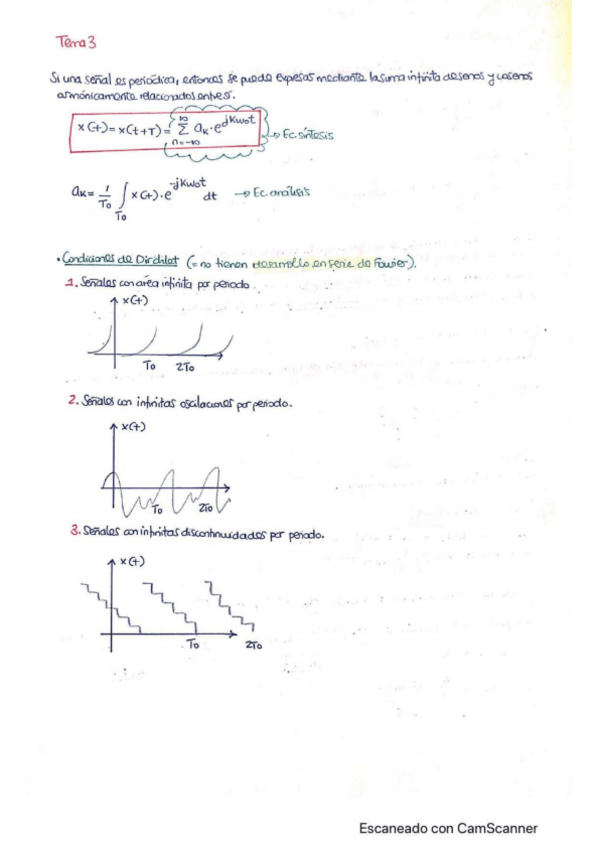 Tema 3
Si una señal es periódica, entonces se puede expesas mediante la suma infinita de senos y cosenos
armónicamente relacionados entre sí.
x(t)=x(t+T)= ∞ Σ n=-∞ aₖ·e^jKωot → Ec. síntesis
aₖ= 1/To ∫To x(t)·e^-jKωot dt → Ec análisis
• Condiciones de Dirchlet (= no tienen desarrollo en serie de Fourier).
1. Señales con área infinita por periodo.
x(t)
To 2To
2. Señales con infinitas oscilaciones por periodo.
x(t)
To 2To
3. Señales con infinitas discontinuidades por periodo.
x(t)
To 2To
Escaneado con CamScanner